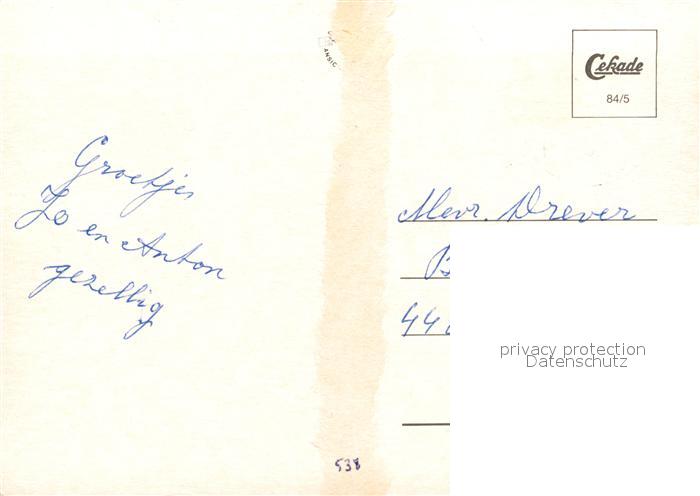 Cekade
84/5
Groetjes
Jo en Anton
gezellig
Mevr. Drever
B
44
privacy protection
Datenschutz
ANSIC
538